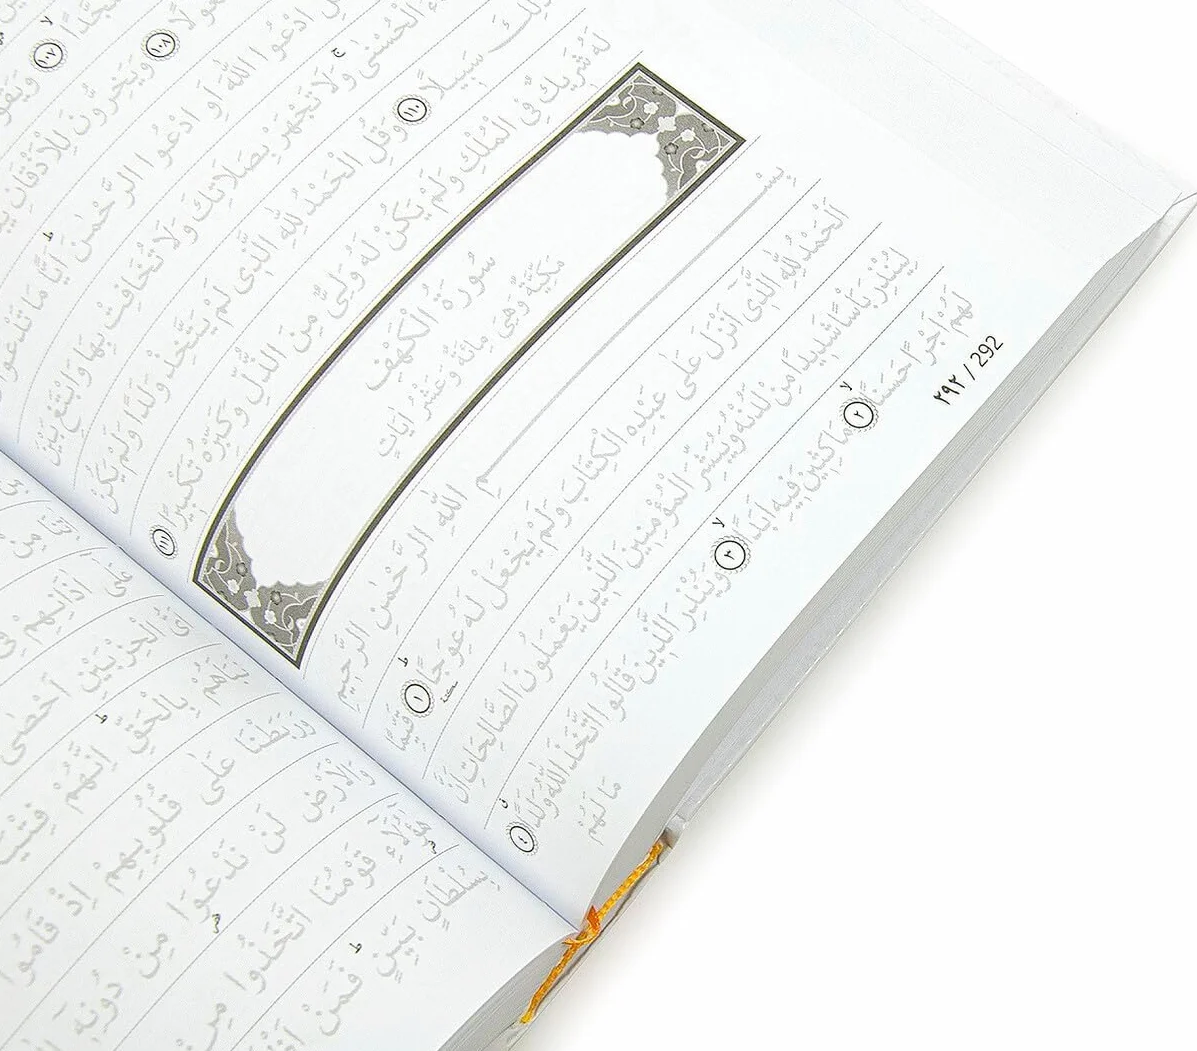 ۱۰۷
۱۰۸ وَيَخِرُّونَ لِلْاَذْقَانِ
ادْعُوا اللّٰهَ اَوِ ادْعُوا الرَّحْمٰنَ اَيًّا مَا تَدْعُوا
الْحُسْنٰى وَلَا تَجْهَرْ بِصَلَاتِكَ وَلَا تُخَافِتْ بِهَا وَابْتَغِ بَيْنَ
ذٰلِكَ سَبِيلًا ۱۱۰ وَقُلِ الْحَمْدُ لِلّٰهِ الَّذِى لَمْ يَتَّخِذْ وَلَدًا وَلَمْ يَكُنْ
لَهُ شَرِيكٌ فِى الْمُلْكِ وَلَمْ يَكُنْ لَهُ وَلِىٌّ مِنَ الذُّلِّ وَكَبِّرْهُ تَكْبِيرًا ۱۱۱
سُورَةُ الْكَهْفِ
مَكِّيَّةٌ وَهِىَ مِائَةٌ وَعَشْرُ اٰيَاتٍ
بِسْمِ اللّٰهِ الرَّحْمٰنِ الرَّحِيمِ
اَلْحَمْدُ لِلّٰهِ الَّذِى اَنْزَلَ عَلٰى عَبْدِهِ الْكِتَابَ وَلَمْ يَجْعَلْ لَهُ عِوَجًا ۱ قَيِّمًا
لِيُنْذِرَ بَاْسًا شَدِيدًا مِنْ لَدُنْهُ وَيُبَشِّرَ الْمُؤْمِنِينَ الَّذِينَ يَعْمَلُونَ الصَّالِحَاتِ اَنَّ
لَهُمْ اَجْرًا حَسَنًا ۲ مَاكِثِينَ فِيهِ اَبَدًا ۳ وَيُنْذِرَ الَّذِينَ قَالُوا اتَّخَذَ اللّٰهُ وَلَدًا ٤ مَا لَهُمْ
۲۹۲ / 292
عَلٰى اٰذَانِهِمْ فِى
الْحِزْبَيْنِ اَحْصٰى
بِالْحَقِّ اِنَّهُمْ
وَرَبَطْنَا عَلٰى قُلُوبِهِمْ اِذْ قَامُوا
وَالْاَرْضِ لَنْ نَدْعُوَا مِنْ دُونِهِ
هٰؤُلَاءِ قَوْمُنَا اتَّخَذُوا مِنْ
بِسُلْطَانٍ بَيِّنٍ فَمَنْ